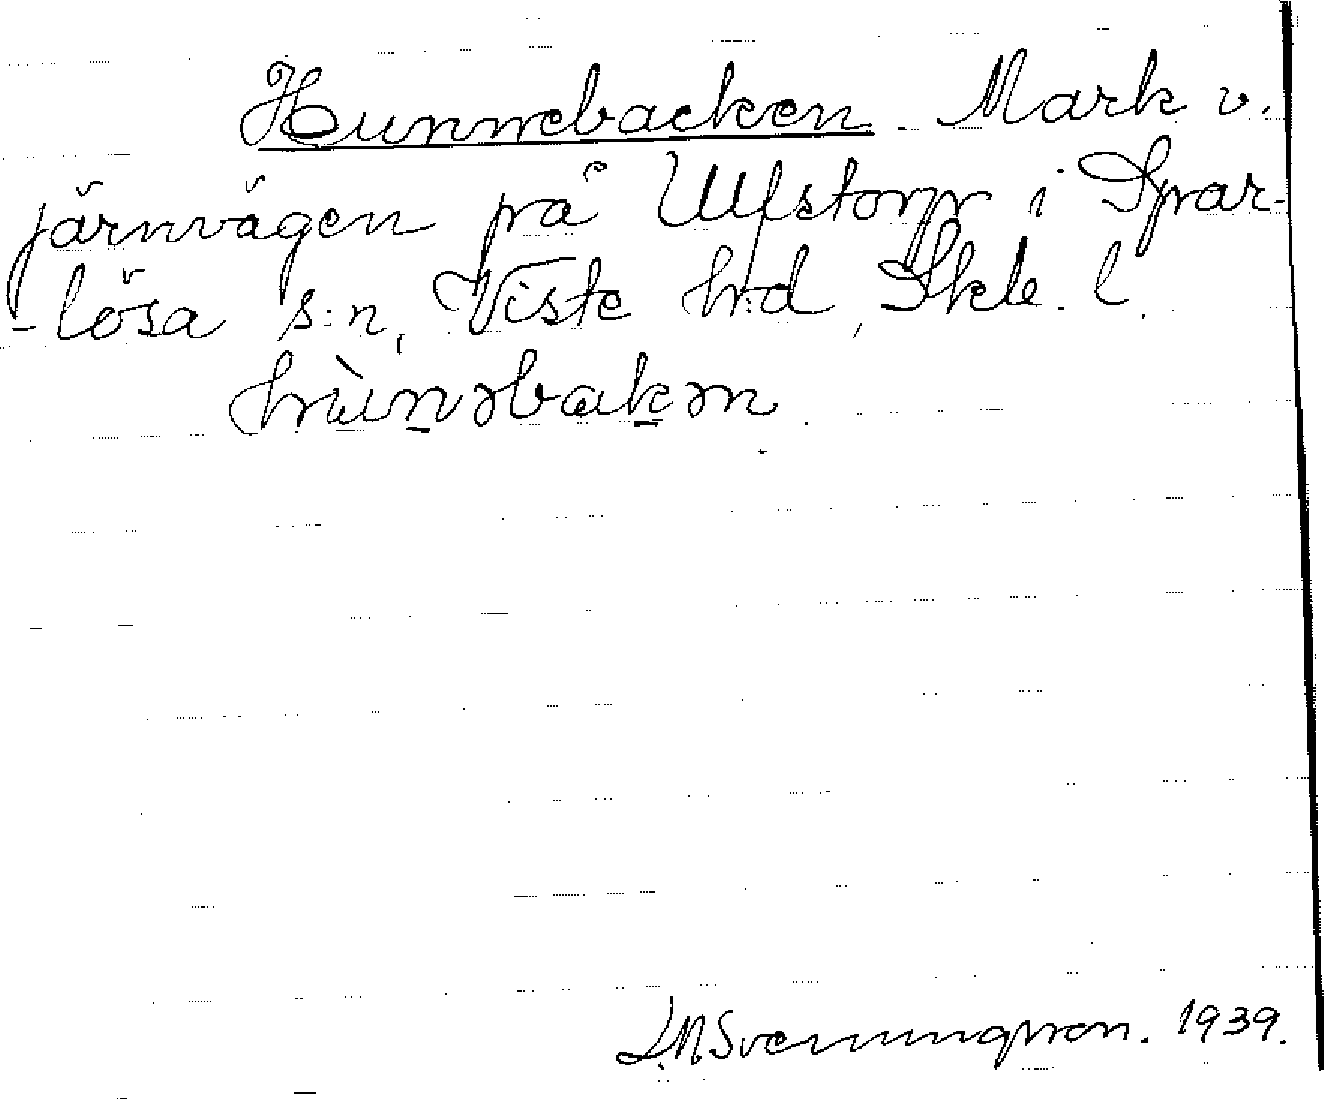 Hunnebacken. Mark v.
järnvägen på Ulfstorp i Spar-
-lösa s:n, Viste h:d, Skbl. l.
hùnəbakən
L.N. Svenningsson. 1939.